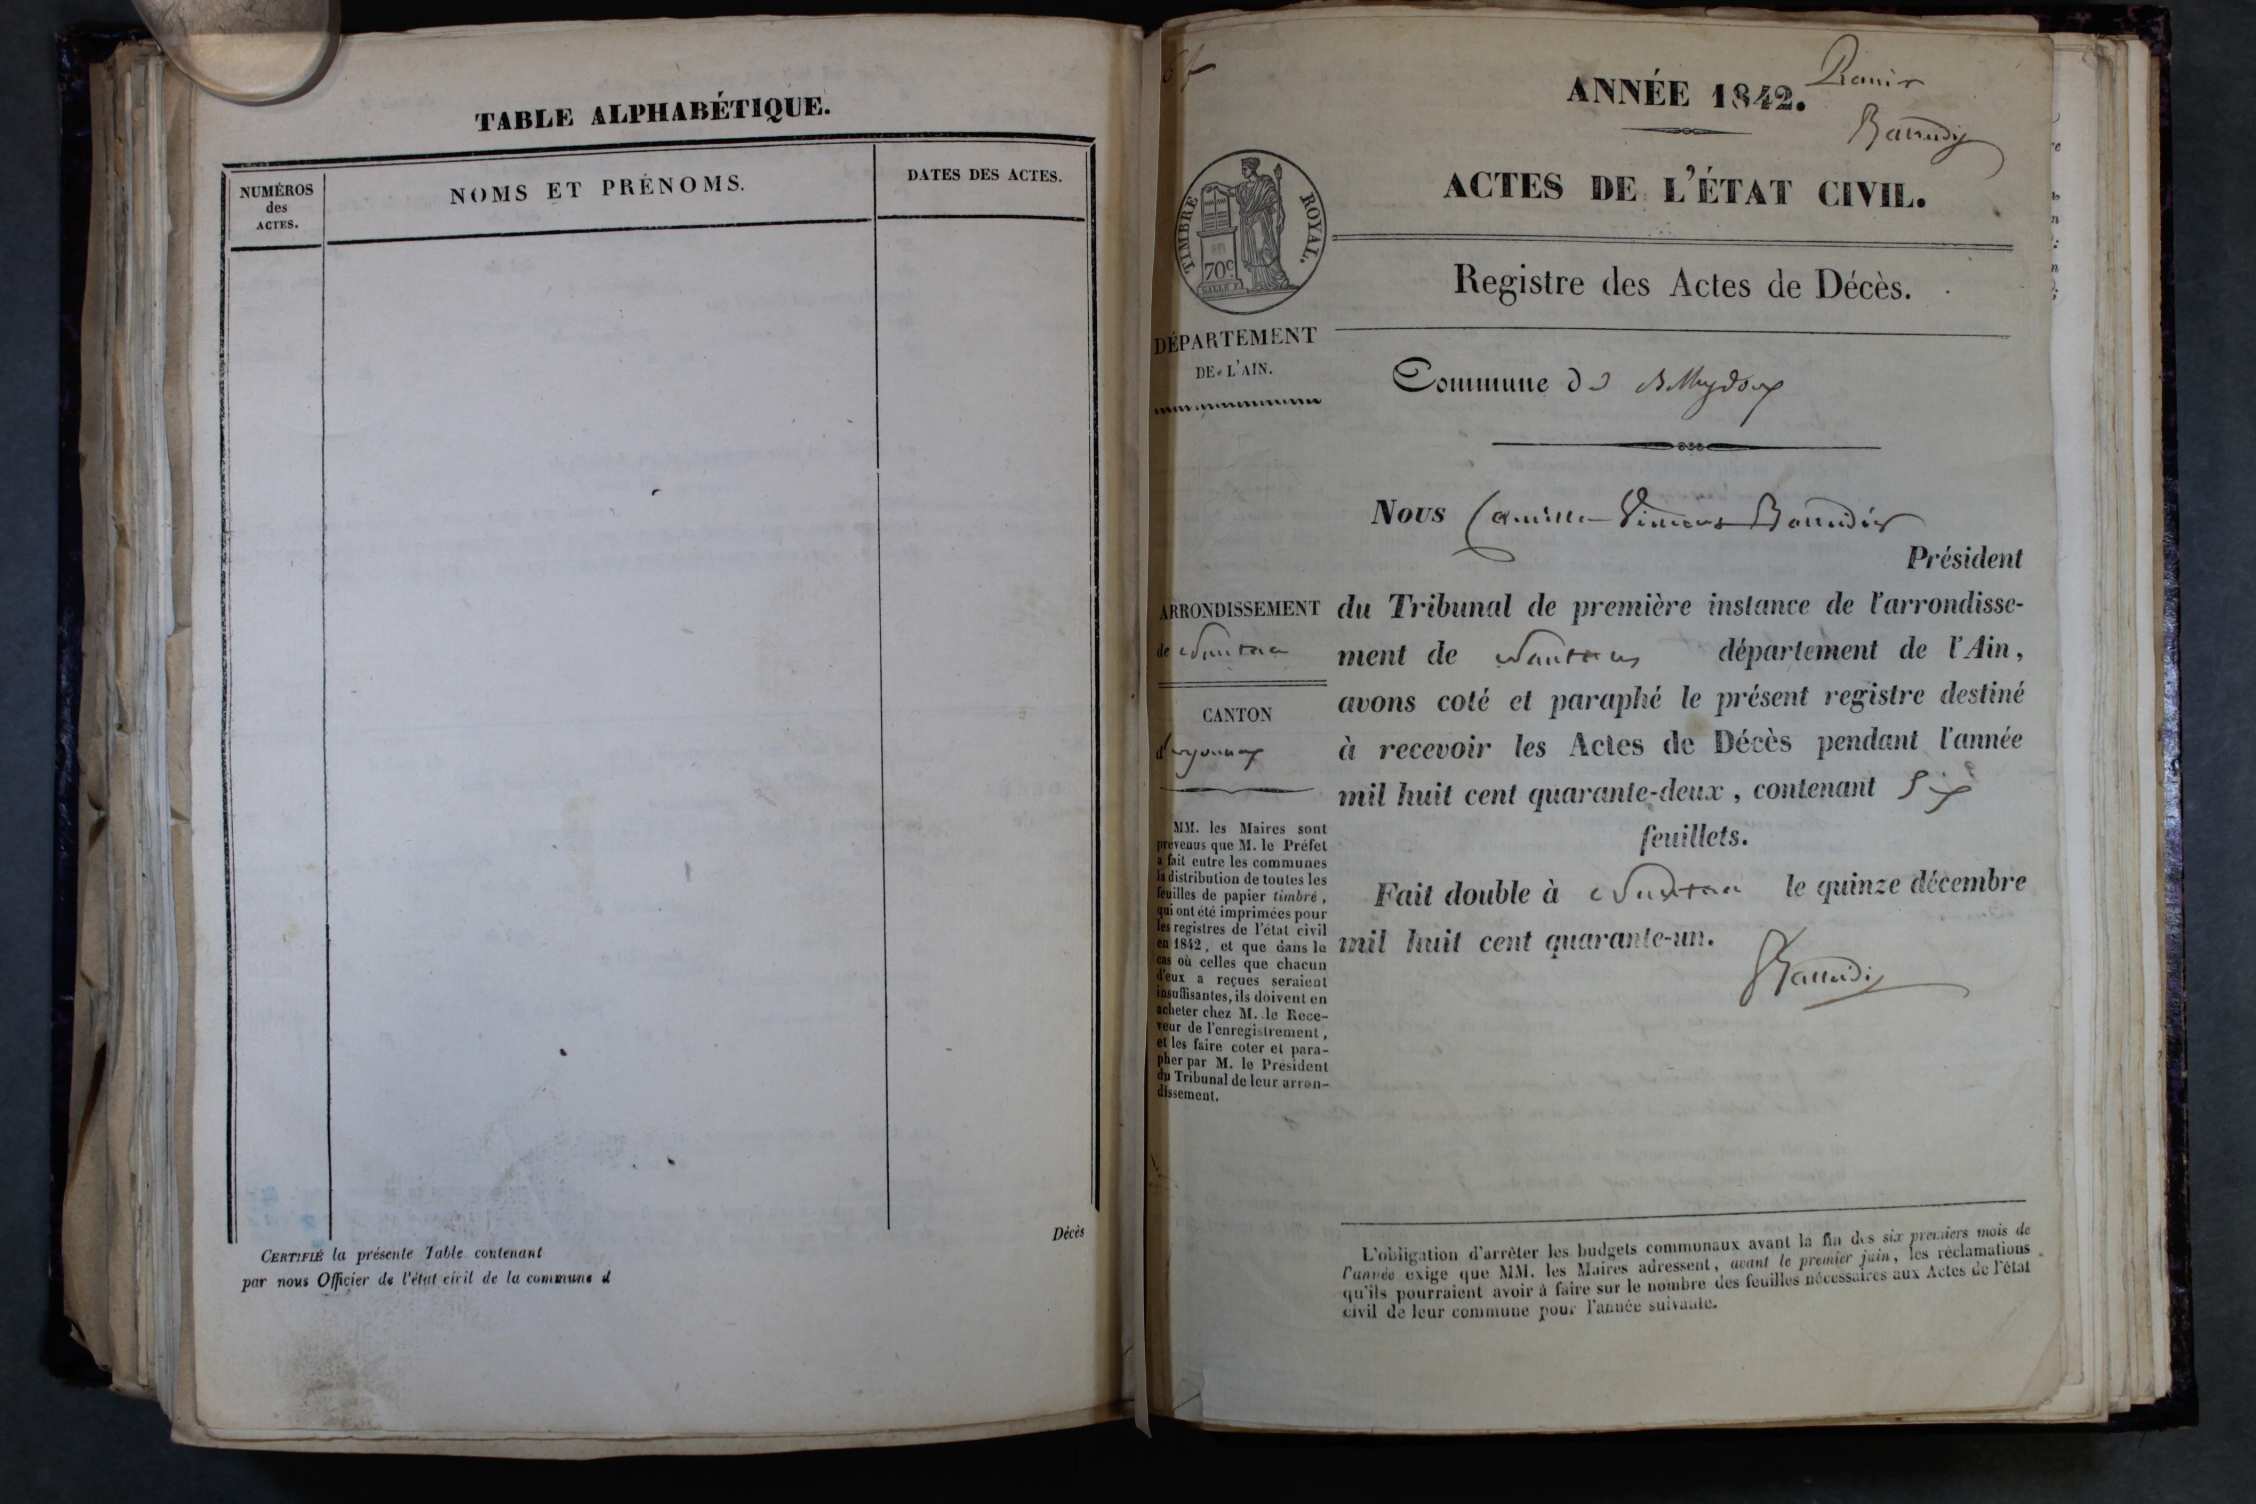 TABLE ALPHABÉTIQUE.
NUMÉROS
des
ACTES.
NOMS ET PRÉNOMS.
DATES DES ACTES.
Décès
CERTIFIÉ la présente Table contenant
par nous Officier de l'état civil de la commune d
ANNÉE 1842.
ACTES DE L'ÉTAT CIVIL.
TIMBRE ROYAL.
70c
Registre des Actes de Décès.
DÉPARTEMENT
DE L'AIN.
Commune de Belleydoux
Nous Camille Vincent
Président
ARRONDISSEMENT
de Nantua
CANTON
d'oyonnax
du Tribunal de première instance de l'arrondisse-
ment de Nantua département de l'Ain,
avons coté et paraphé le présent registre destiné
à recevoir les Actes de Décès pendant l'année
mil huit cent quarante-deux, contenant Six
feuillets.
Fait double à Nantua le quinze décembre
mil huit cent quarante-un.
MM. les Maires sont
prévenus que M. le Préfet
a fait entre les communes
la distribution de toutes les
feuilles de papier timbré,
qui ont été imprimées pour
les registres de l'état civil
en 1842, et que dans le
cas où celles que chacun
d'eux a reçues seraient
insuffisantes, ils doivent en
acheter chez M. le Rece-
veur de l'enregistrement,
et les faire coter et para-
pher par M. le Président
du Tribunal de leur arron-
dissement.
L'obligation d'arrêter les budgets communaux avant la fin des six premiers mois de
l'année exige que MM. les Maires adressent, avant le premier juin, les réclamations
qu'ils pourraient avoir à faire sur le nombre des feuilles nécessaires aux Actes de l'état
civil de leur commune pour l'année suivante.